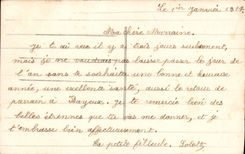 Le 1er Janvier 1919.
Ma Chère Marraine.
Je t'ai vue il y a trois jours seulement,
mais je ne voudrais pas laisser passer le jour de
l'an sans te souhaiter une bonne et heureuse
année, une excellente santé, aussi le retour de
parrain à Hayeux. Je te remercie bien des
belles étrennes que tu vas me donner, et je
t'embrasse bien affectueusement.
Ta petite filleule,